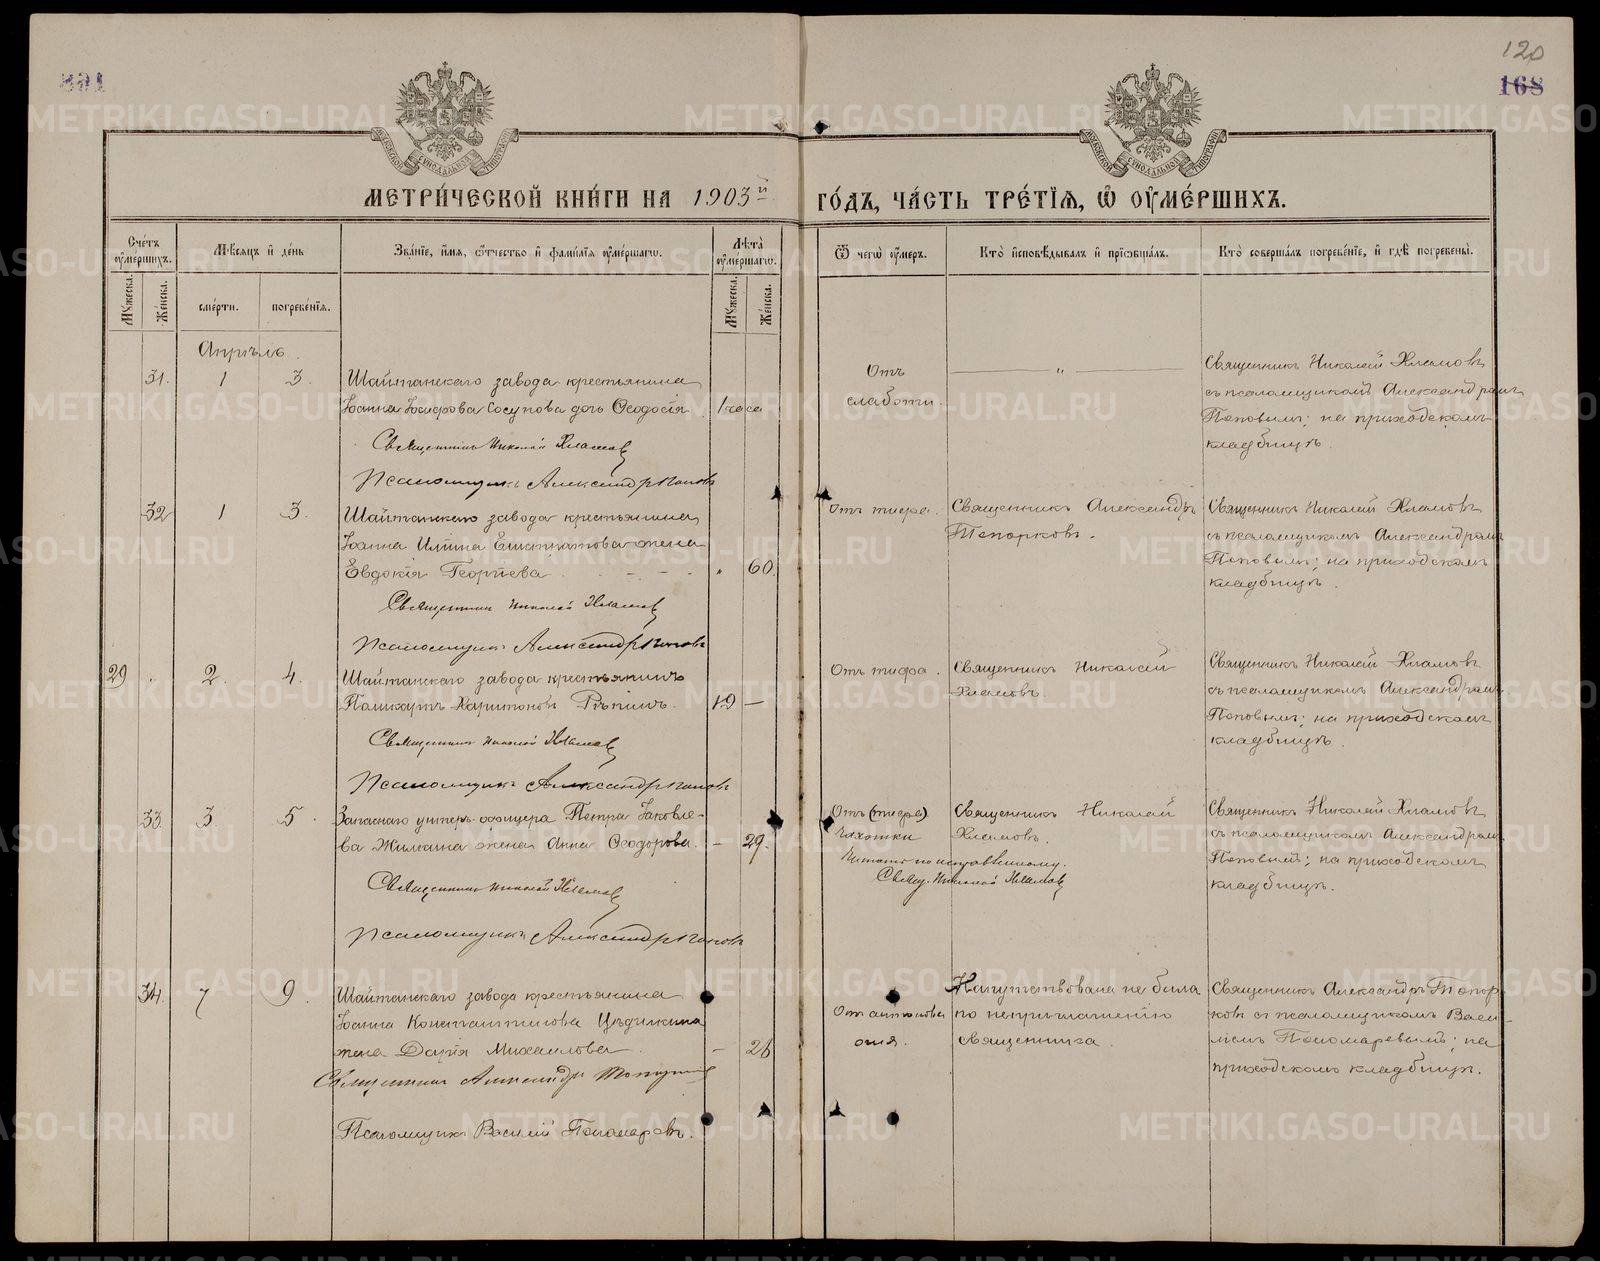 120
168
МЕТРИ́ЧЕСКОЙ КНИ́ГИ НА 1903й ГО́ДЪ, ЧА́СТЬ ТРЕ́ТІѦ, Ѿ ОУ҆МЕ́РШИХЪ.
Сче́тъ оу҆ме́ршихъ.
Мѣ́сяцъ и де́нь
Зва́нїе, и҆́мя, ѻ҆́тчество и҆ фами́лїя оу҆ме́ршагѡ.
Лѣ́та оу҆ме́ршагѡ.
Ѿ чегѡ̀ оу҆́меръ.
Кто̀ и҆сповѣ́дывалъ и҆ прїѡбща́лъ.
Кто̀ соверша́лъ погребе́нїе, и҆ гдѣ̀ погребены̀.
Му́жеска.
Же́нска.
сме́рти.
погребе́нїя.
Му́жеска.
Же́нска.
Апрѣль.
31. 1 3. Шайтанскаго завода крестьянина
Іоанна Іосифова Сосунова дочь Ѳеодосія 1 часа
Священникъ Николай Хламовъ
Псаломщикъ Александръ Поповъ
Отъ
слабости.
Священникъ Николай Хламовъ
съ псаломщикомъ Александромъ
Поповымъ; на приходскомъ
кладбищѣ.
32 1 3. Шайтанскаго завода крестьянина
Іоанна Ильина Евстратова жена
Евдокія Георгіева " 60.
Священникъ Николай Хламовъ
Псаломщикъ Александръ Поповъ
Отъ тифа.
Священникъ Александръ
Топорковъ.
Священникъ Николай Хламовъ
съ псаломщикомъ Александромъ
Поповымъ; на приходскомъ
кладбищѣ.
29 2. 4. Шайтанскаго завода крестьянинъ
Поликарпъ Харитоновъ Рѣпинъ. 19 —
Священникъ Николай Хламовъ
Псаломщикъ Александръ Поповъ
Отъ тифа.
Священникъ Николай
Хламовъ.
Священникъ Николай Хламовъ
съ псаломщикомъ Александромъ
Поповымъ; на приходскомъ
кладбищѣ.
33 3. 5. Запаснаго унтеръ-офицера Петра Іаковле-
ва Жилкина жена Анна Ѳеодорова. — 29.
Священникъ Николай Хламовъ
Псаломщикъ Александръ Поповъ
Отъ (тифа)
чахотки
Священникъ Николай
Хламовъ.
Читать по исправленному.
Свящ. Николай Хламовъ
Священникъ Николай Хламовъ
съ псаломщикомъ Александромъ
Поповымъ; на приходскомъ
кладбищѣ.
34. 7 9. Шайтанскаго завода крестьянина
Іоанна Константинова
жена Дарія Михаилова. — 26
Священникъ Александръ Топорковъ
Псаломщикъ Василій Пономаревъ.
Отъ антонова
огня.
Напутствована не была
по неприглашенію
священника.
Священникъ Александръ Топор-
ковъ съ псаломщикомъ Васи-
ліемъ Пономаревымъ; на
приходскомъ кладбищѣ.
METRIKI.GASO-URAL.RU